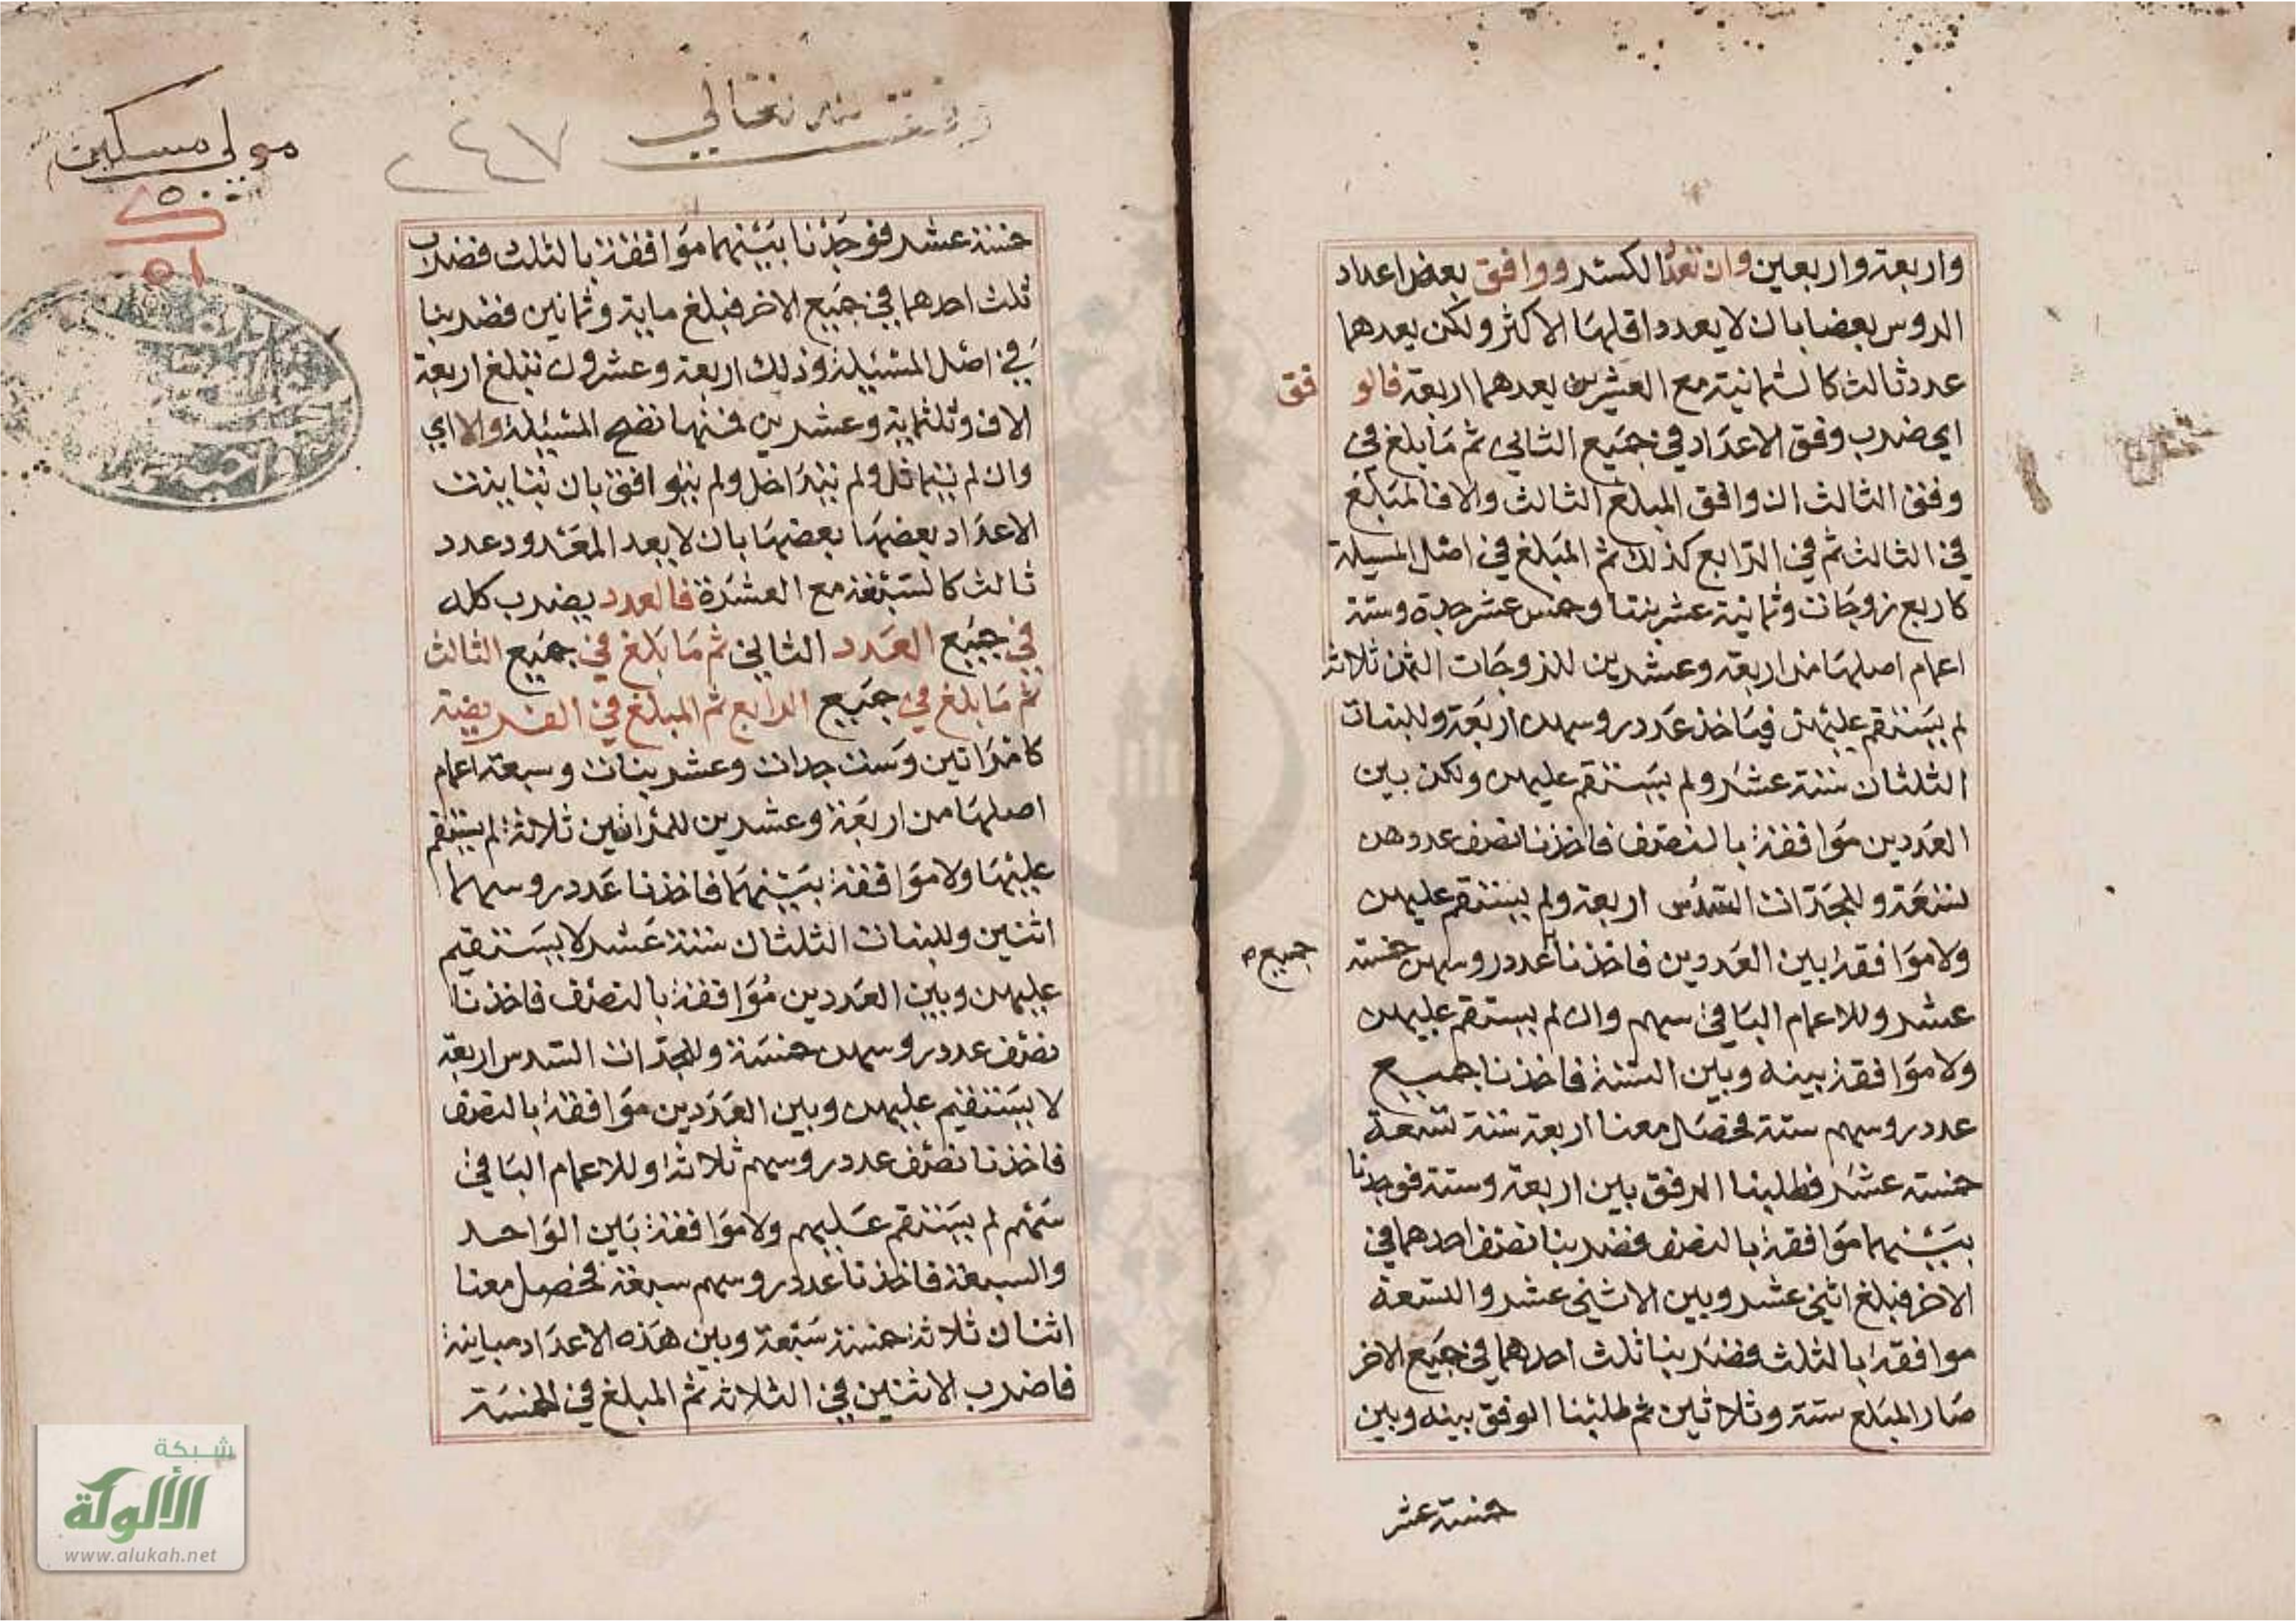 واربعة واربعين وان تعدد الكسر ووافق بعض اعداد
الروس بعضا بان لا يعدد اقلها الاكثر ولكن يعدهما
عدد ثالث كالثمانية مع العشرين يعدهما اربعة فالو فق
اي ضرب وفق الاعداد في جميع الثاني ثم ما بلغ في
وفق الثالث ان وافق المبلغ الثالث والا فالمبلغ
في الثالث ثم في الرابع كذلك ثم المبلغ في اصل المسيلة
كاربع زوجات وثمانية عشر بنتا وخمس عشر جدة وستة
اعمام اصلها من اربعة وعشرين للزوجات الثمن ثلاثة
لم يستقم عليهن فياخذ عدد روسهن اربعة وللبنات
الثلثان ستة عشر ولم يستقم عليهن ولكن بين
العددين موافقة بالنصف فاخذنا نصف عددهن
تسعة وللجدات السدس اربعة ولم يستقم عليهن
ولا موافقة بين العددين فاخذنا عدد روسهن خمسة
جميع
عشر وللاعمام الباقي سهم وان لم يستقم عليهن
ولا موافقة بينه وبين الستة فاخذنا جميع
عدد روسهم ستة فحصل معنا اربعة ستة تسعة
خمسة عشر فطلبنا الوفق بين اربعة وستة فوجدنا
بينهما موافقة بالنصف فضربنا نصف احدهما في
الاخر فبلغ اثني عشر وبين الاثني عشر والتسعة
موافقة بالثلث فضربنا ثلث احدهما في جميع الاخر
صار المبلغ ستة وثلاثين ثم طلبنا الوفق بينه وبين
خمسة عشر
وقف لله تعالي
٢٤٧
مولي مسكين
٨٥٠
٥١
خمسة عشر فوجدنا بينهما موافقة بالثلث فضرب
ثلث احدهما في جميع الاخر فبلغ ماية وثمانين فضربنا
في اصل المسئيلة وذلك اربعة وعشرون تبلغ اربعة
الاف وثلثماية وعشرين فمنها تصح المسئيلة والا اي
وان لم يتماثل ولم يتداخل ولم يتوافق بان تباينت
الاعداد بعضها بعضها بان لا يعد المعدود عدد
ثالث كالتسعة مع العشرة فالعدد يضرب كله
في جميع العدد الثاني ثم ما بلغ في جميع الثالث
ثم ما بلغ في جميع الرابع ثم المبلغ في الفريضة
كامراتين وست جدات وعشر بنات وسبعة اعمام
اصلها من اربعة وعشرين للمراتين ثلاثة لم يستقم
عليهما ولا موافقة بينهما فاخذنا عدد روسهما
اثنين وللبنات الثلثان ستة عشر لا يستقيم
عليهن وبين العددين موافقة بالنصف فاخذنا
نصف عدد روسهن خمسة وللجدات السدس اربعة
لا يستقيم عليهن وبين العددين موافقة بالنصف
فاخذنا نصف عدد روسهم ثلاثة وللاعمام الباقي
سهم لم يستقم عليهم ولا موافقة بين الواحد
والسبعة فاخذنا عدد روسهم سبعة فحصل معنا
اثنان ثلاثة خمسة سبعة وبين هذه الاعداد مباينة
فاضرب الاثنين في الثلاثة ثم المبلغ في الخمسة
شبكة
الألوكة
www.alukah.net